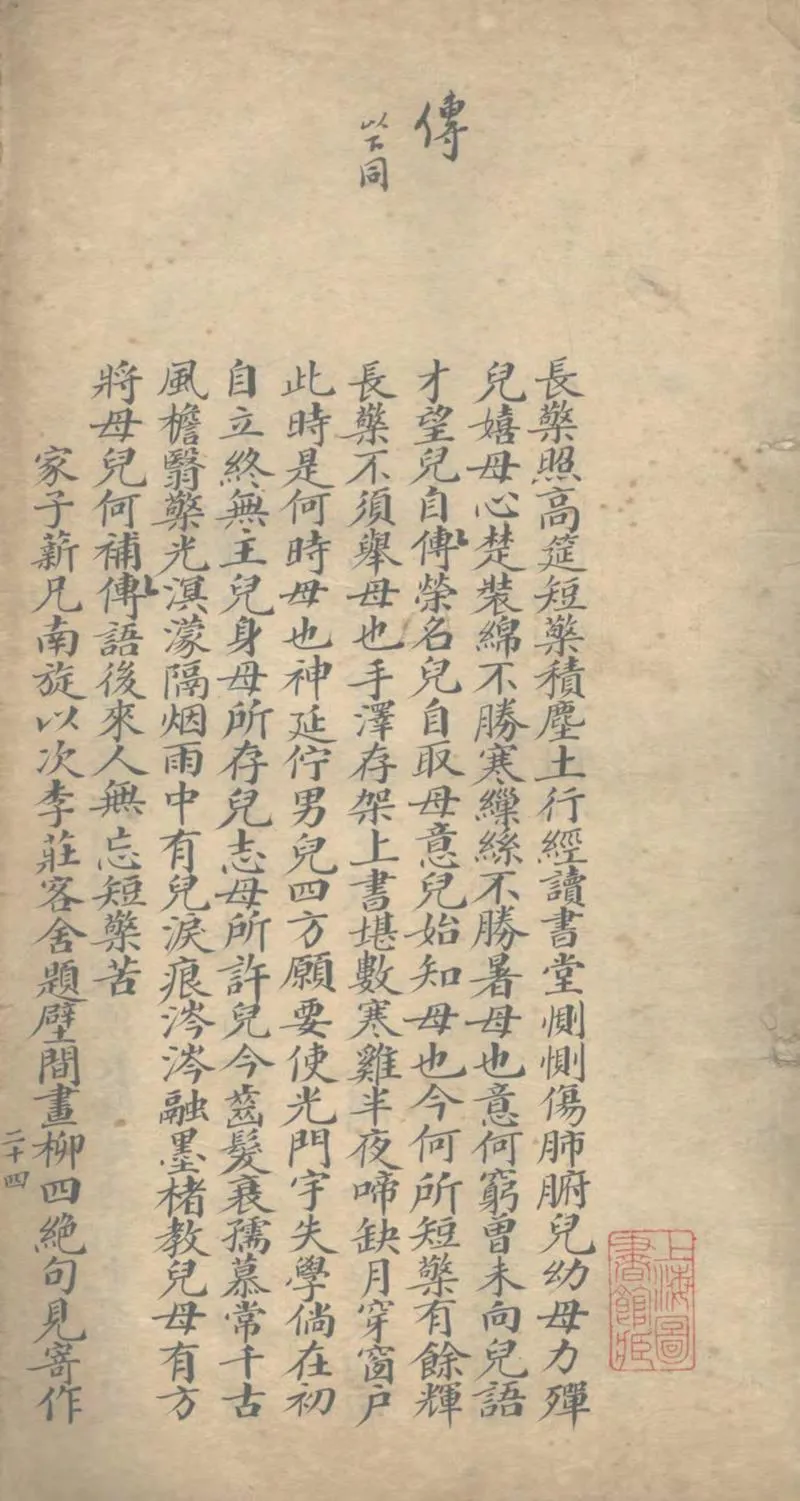 傳
以下同
長檠照高筵短檠積塵土行經讀書堂惻惻傷肺腑兒幼母力殫
兒嬉母心楚裝綿不勝寒繅絲不勝暑母也意何窮曾未向兒語
才望兒自傳榮名兒自取母意兒始知母也今何所短檠有餘輝
長檠不須舉母也手澤存架上書堪數寒雞半夜啼缺月穿窗戶
此時是何時母也神延佇男兒四方願要使光門宇失學倘在初
自立終無主兒身母所存兒志母所許兒今齒髮衰孺慕常千古
風檐翳檠光溟濛隔烟雨中有兒淚痕涔涔融墨楮教兒母有方
將母兒何補傳語後來人無忘短檠苦
家子薪兄南旋以次李莊客舍題壁間畫柳四絕句見寄作
二十四
上海圖
書館藏